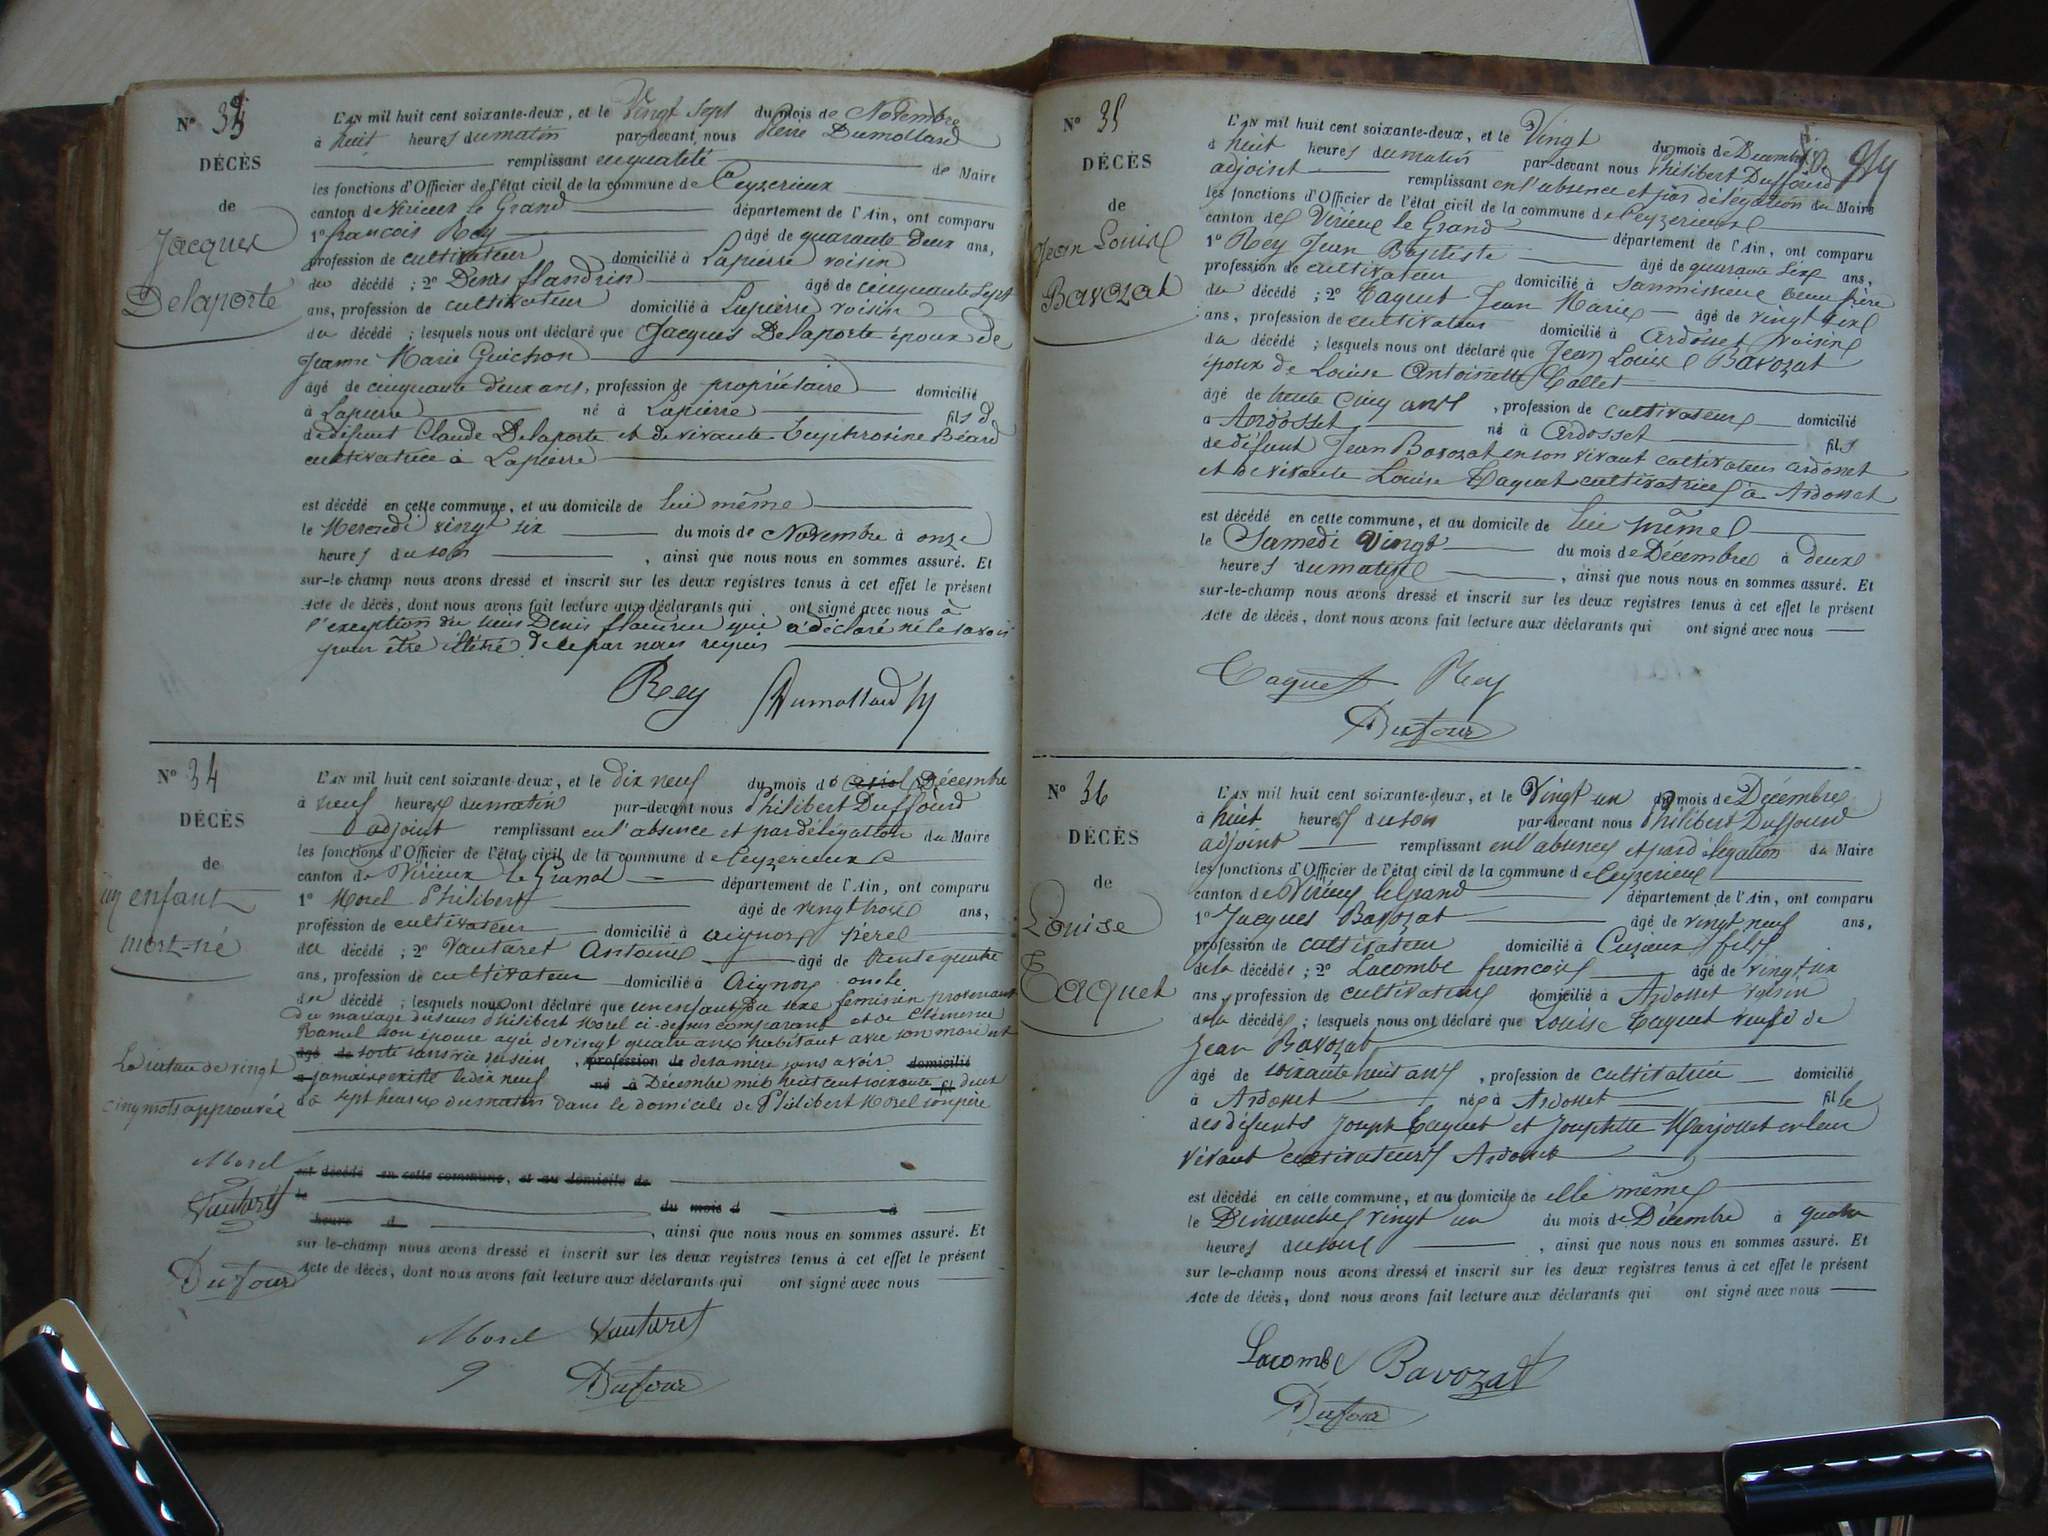 N° 33
DÉCÈS
de
Jacques
Delaporte
L'AN mil huit cent soixante-deux, et le Vingt Sept du mois de Novembre
à huit heures du matin par-devant nous Pierre Dumollard
remplissant en qualité de Maire
les fonctions d'Officier de l'état civil de la commune de Ceyzerieux
canton de Virieux le Grand département de l'Ain, ont comparu
1° françois Rey âgé de quarante deux ans,
profession de cultivateur domicilié à Lapierre voisin
du décédé ; 2° Denis flandrin âgé de cinquante Sept
ans, profession de cultivateur domicilié à Lapierre voisin
du décédé ; lesquels nous ont déclaré que Jacques Delaporte époux de
Jeanne Marie Guichon
âgé de cinquante deux ans, profession de propriétaire domicilié
à Lapierre né à Lapierre fils d
de défunt Claude Delaporte et de vivante Euphrosine Béard
cultivatrice à Lapierre
est décédé en cette commune, et au domicile de lui même
le Mercredi vingt six du mois de Novembre à onze
heures du soir , ainsi que nous nous en sommes assuré. Et
sur-le-champ nous avons dressé et inscrit sur les deux registres tenus à cet effet le présent
Acte de décès, dont nous avons fait lecture aux déclarants qui ont signé avec nous à
l'exception du sieur Denis flandrin qui a déclaré ne le savoir
pour être illétré de ce par nous requis
Rey Dumollard
N° 34
DÉCÈS
de
un enfant
mort-né
L'AN mil huit cent soixante-deux, et le dix neuf du mois de Décembre
à neuf heures du matin par-devant nous Philibert Duffourd
adjoint remplissant en l'absence et par délégation du Maire
les fonctions d'Officier de l'état civil de la commune de Ceyzerieux
canton de Virieux le Grand département de l'Ain, ont comparu
1° Morel Philibert âgé de vingt trois ans,
profession de cultivateur domicilié à aignoz père
du décédé ; 2° Vautaret Antoine âgé de trente quatre
ans, profession de cultivateur domicilié à Aignoz oncle
du décédé ; lesquels nous ont déclaré que un enfant du sexe féminin provenant
du mariage du sieur Philibert Morel ci-dessus comparant et de Clémence
Ramel son épouse agée de vingt quatre ans habitant avec son mari est
âgé de sorti sans vie du sein , profession de de sa mère sans avoir domicilié
à jamais existé le dix neuf né à Décembre mil huit cent soixante fil deux
d à sept heures du matin dans le domicile de Philibert Morel son père
La rature de vingt
cinq mots approuvée
Morel
Vautaret
Dufour
est décédé en cette commune, et au domicile de
le du mois d à
heure d , ainsi que nous nous en sommes assuré. Et
sur le-champ nous avons dressé et inscrit sur les deux registres tenus à cet effet le présent
Acte de décès, dont nous avons fait lecture aux déclarants qui ont signé avec nous
Morel Vautaret
Dufour
N° 35
DÉCÈS
de
Jean Louis
Bavozat
L'AN mil huit cent soixante-deux, et le Vingt du mois de Décembre
à huit heures du matin par-devant nous Philibert Duffourd
adjoint remplissant en l'absence et par délégation du Maire
les fonctions d'Officier de l'état civil de la commune de Ceyzerieux
canton de Virieux le Grand département de l'Ain, ont comparu
1° Rey Jean Baptiste âgé de quarante six ans,
profession de cultivateur domicilié à beau frère
du décédé ; 2° Taquet Jean Marie âgé de vingt six
ans, profession de cultivateur domicilié à Ardosset voisin
du décédé ; lesquels nous ont déclaré que Jean Louis Bavozat
époux de Louise Antoinette Collet
âgé de trente cinq ans , profession de cultivateur domicilié
à Ardosset né à Ardosset fils
de défunt Jean Bavozat en son vivant cultivateur ardosset
et de vivante Louise Taquet cultivatrice à Ardosset
est décédé en cette commune, et au domicile de lui même
le Samedi Vingt du mois de Décembre à deux
heures du matin , ainsi que nous nous en sommes assuré. Et
sur-le-champ nous avons dressé et inscrit sur les deux registres tenus à cet effet le présent
Acte de décès, dont nous avons fait lecture aux déclarants qui ont signé avec nous
Taquet Rey
Dufour
N° 36
DÉCÈS
de
Louise
Taquet
L'AN mil huit cent soixante-deux, et le Vingt un du mois de Décembre
à huit heures du soir par-devant nous Philibert Duffourd
adjoint remplissant en l'absence et par délégation du Maire
les fonctions d'Officier de l'état civil de la commune de Ceyzerieux
canton de Virieux le Grand département de l'Ain, ont comparu
1° Jacques Bavozat âgé de vingt neuf ans,
profession de cultivateur domicilié à Cuzeux fils
de la décédée ; 2° Lacombe françois âgé de vingt six
ans, profession de cultivateur domicilié à Ardosset voisin
de la décédée ; lesquels nous ont déclaré que Louise Taquet veuve de
Jean Bavozat
âgé de soixante huit ans , profession de cultivatrice domicilié
à Ardosset née à Ardosset fille
des défunts Joseph Taquet et Josephtte Marjollet en leur
vivant cultivateurs Ardosset
est décédé en cette commune, et au domicile de elle même
le Dimanche vingt un du mois de Décembre à quatre
heures du soir , ainsi que nous nous en sommes assuré. Et
sur le-champ nous avons dressé et inscrit sur les deux registres tenus à cet effet le présent
Acte de décès, dont nous avons fait lecture aux déclarants qui ont signé avec nous
Lacombe Bavozat
Dufour